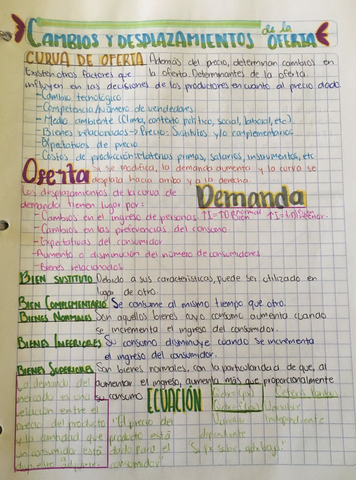 CAMBIOS Y DESPLAZAMIENTOS de la OFERTA
CURVA DE OFERTA Además del precio, determinan cambios en
Existen otros factores que la oferta. Determinantes de la oferta
influyen en las decisiones de los productores en cuanto al precio dado
-Cambio tecnológico
-Competencia/Número de vendedores
-Medio ambiente (Clima, contexto político, social, laboral, etc)
-Bienes relacionados → Precio: Sustitutos y/o complementarios
-Expectativas de precio
-Costos de producción: Materias primas, salarios, instrumentos, etc
Oferta Si se modifica, la demanda aumenta y la curva se
desplaza hacia arriba y a la derecha.
Los desplazamientos de la curva de Demanda
demanda tienen lugar por:
-Cambios en el ingreso de personas ↑I=↑D normal
-Cambios en las preferencias del consumo
-Expectativas del consumidor
-Aumento o disminución del número de consumidores
-Bienes relacionados
BIEN SUSTITUTO Debido a sus características, puede ser utilizado en
lugar de otro.
BIEN COMPLEMENTARIO Se consume al mismo tiempo que otro.
BIENES NORMALES Son aquellos bienes cuyo consumo aumenta cuando
se incrementa el ingreso del consumidor.
BIENES INFERIORES Su consumo disminuye cuando se incrementa
el ingreso del consumidor.
BIENES SUPERIORES Son bienes normales, con la particularidad de que, al
aumentar el ingreso, aumenta más que proporcionalmente
su consumo
ECUACIÓN
La demanda de
mercado es una
relación entre el
precio del producto
y la cantidad que
"El precio del
producto está
dado para el
consumidor"
Variable
dependiente
Variable
Independiente